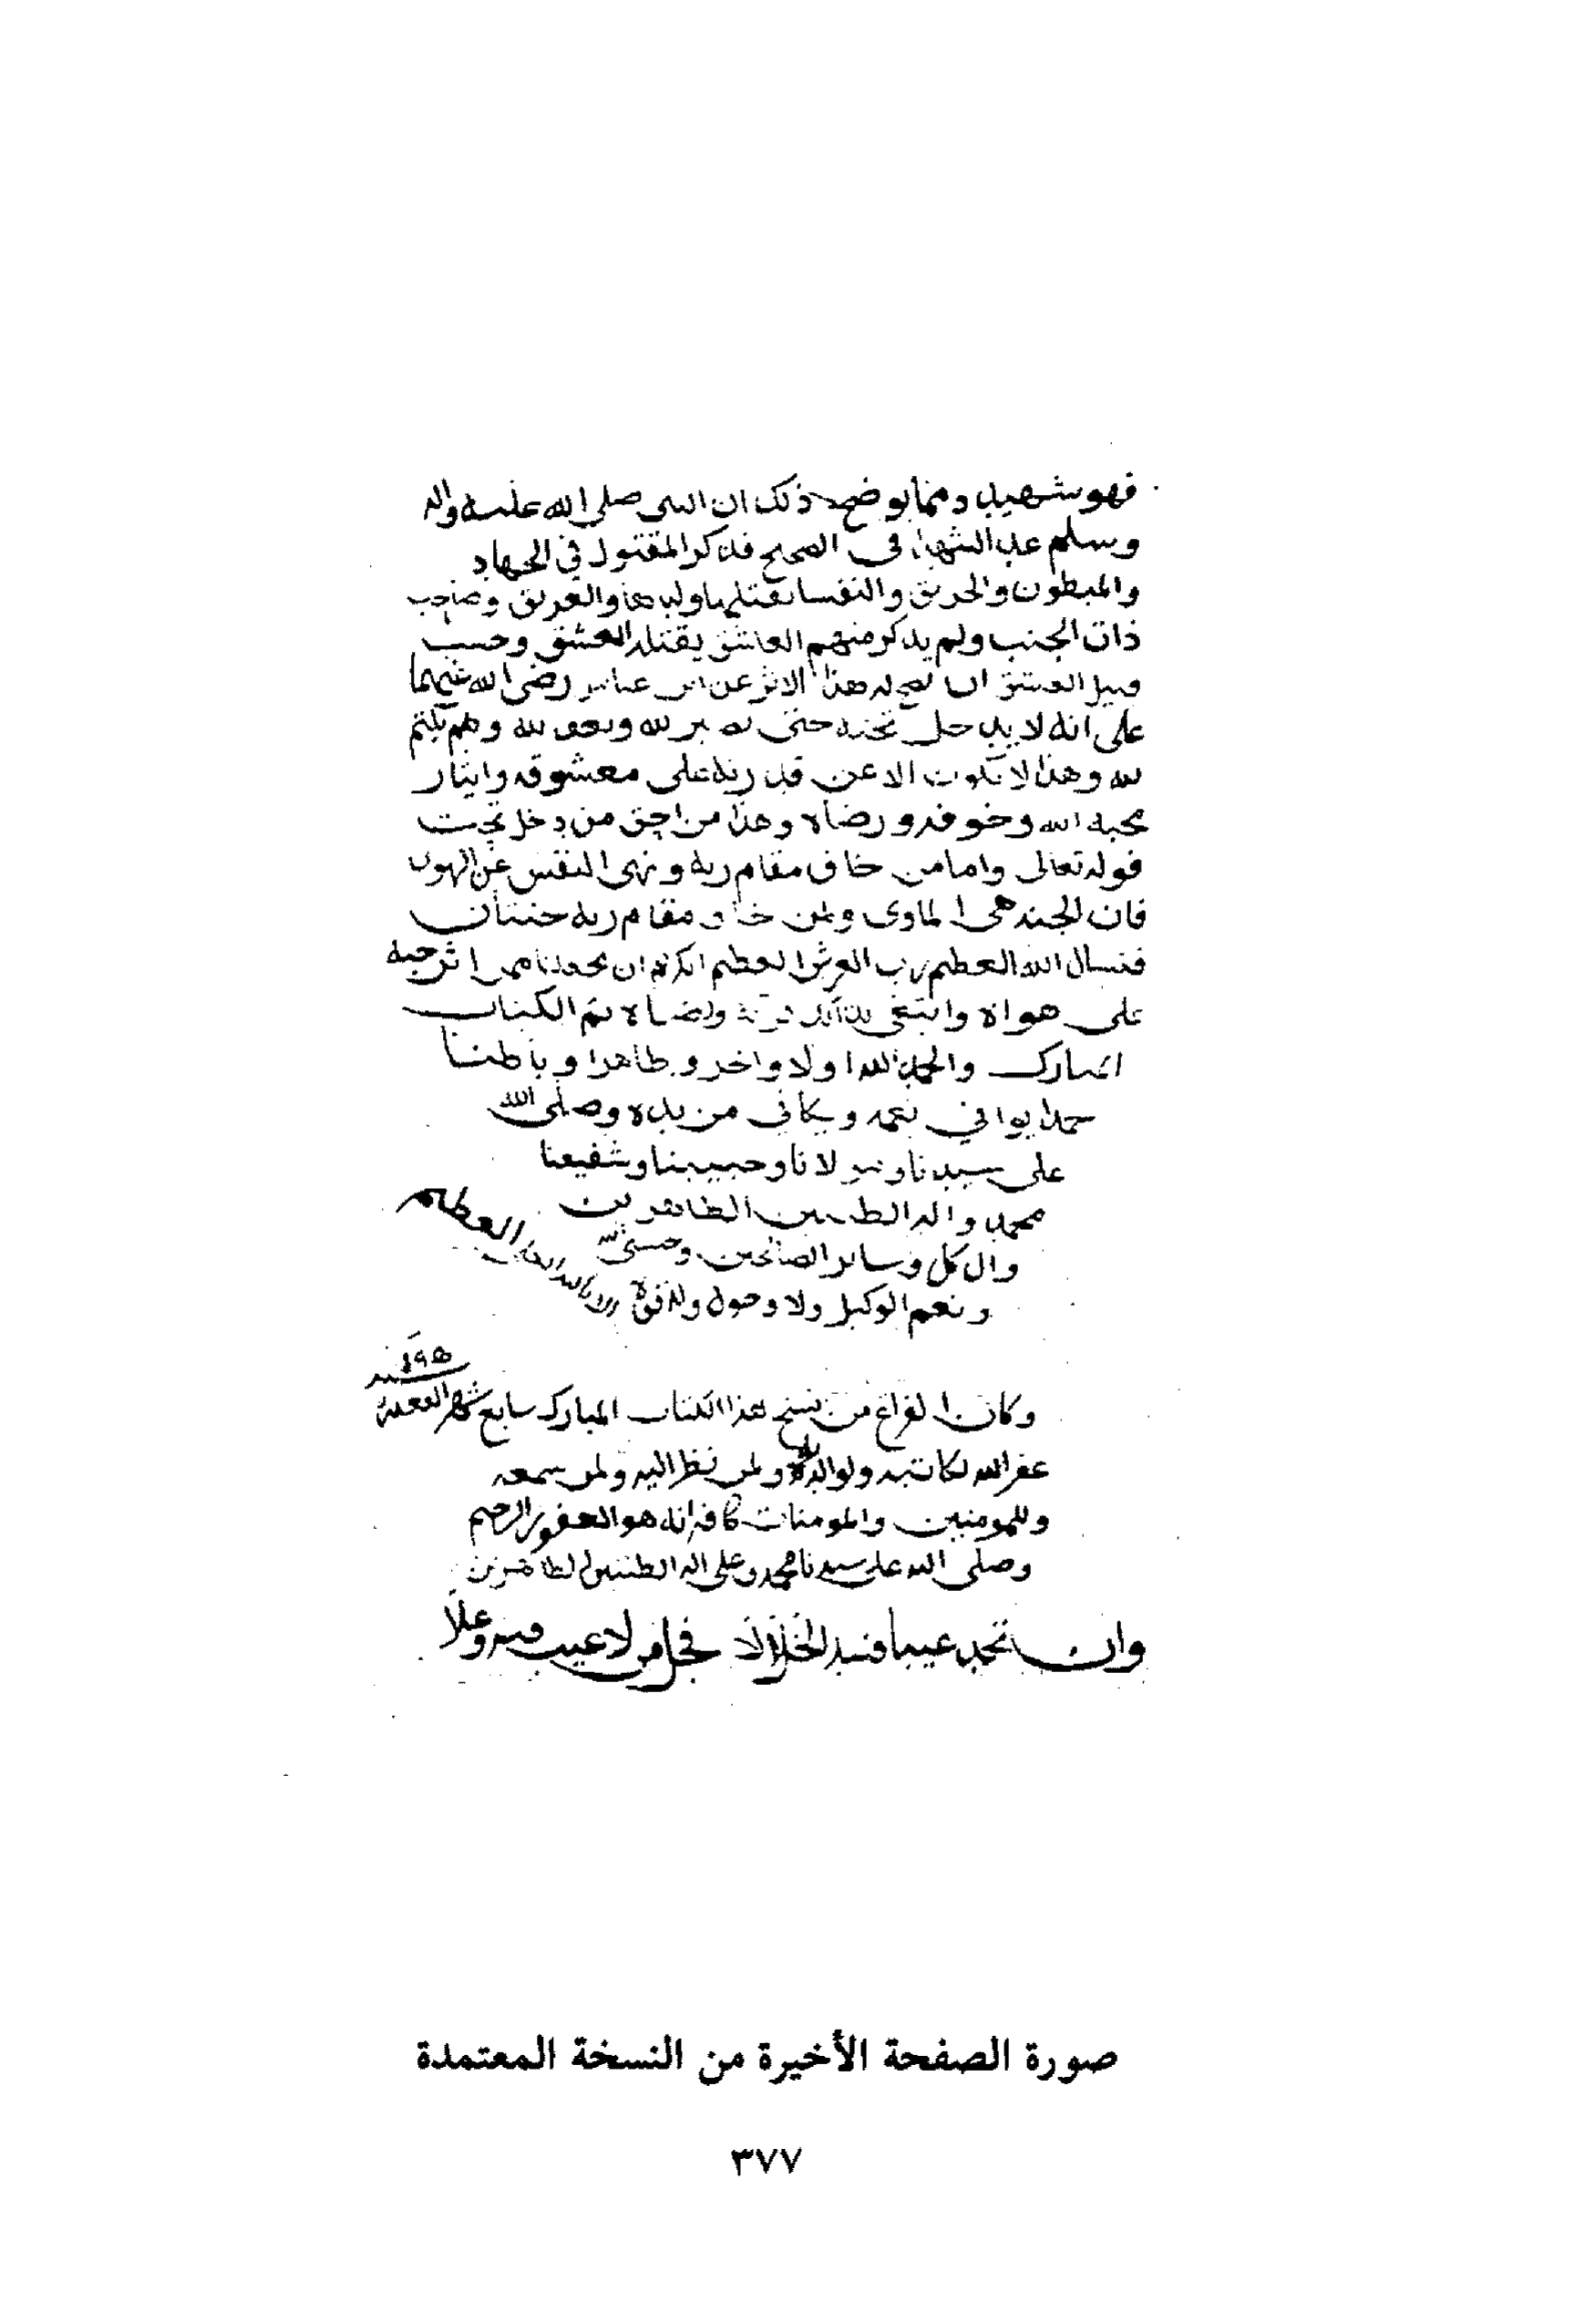 فهو شهيد ومما يوضح ذلك ان النبي صلى الله عليه واله
وسلم عد الشهداء في الصحيح فذكر المقتول في الجهاد
والمبطون والحريق والنفسا يقتلها ولدها والغريق وصاحب
ذات الجنب ولم يذكر منهم العاشق يقتله العشق وحسب
قتيل العشق ان يصح له هذا الاثر عن ابن عباس رضي الله عنهما
على انه لا يدخل تحته حتى يصبر لله ويعف لله ويكتم
لله وهذا لا يكون الا عن قدرته على معشوقه وايثار
محبة الله وخوفه ورضاه وهذا من احق من دخل تحت
قوله تعالى واما من خاف مقام ربه ونهى النفس عن الهوى
فان الجنه هي الماوى ولمن خاف مقام ربه جنتان
فنسال الله العظيم رب العرش العظيم الكريم ان يجعلنا ممن اثر حبه
على هواه وابتغى بذلك قربه ورضاه تم الكتاب
المبارك والحمد لله اولا واخر وظاهرا وباطنا
حمدا يوافي نعمه ويكافي مزيده وصلى الله
على سيدنا ومولانا وحبيبنا وشفيعنا
محمد واله الطيبين الطاهرين
وال كل وساير الصالحين وحسبي الله
ونعم الوكيل ولا وحول ولا قوة الا بالله العلي العظيم
وكان الفراغ من نسخ هذا الكتاب المبارك سابع شهر القعدة
سنة
غفر الله لكاتبه ولوالديه ولمن نظر اليه ولمن سمعه
وللمومنين والمومنات كافه انه هو الغفور الرحيم
وصلى الله على سيدنا محمد وعلى اله الطيبين الطاهرين
وان تجد عيبا فسد الخللا فجل من لا عيب فيه وعلا
صورة الصفحة الأخيرة من النسخة المعتمدة
٣٧٧